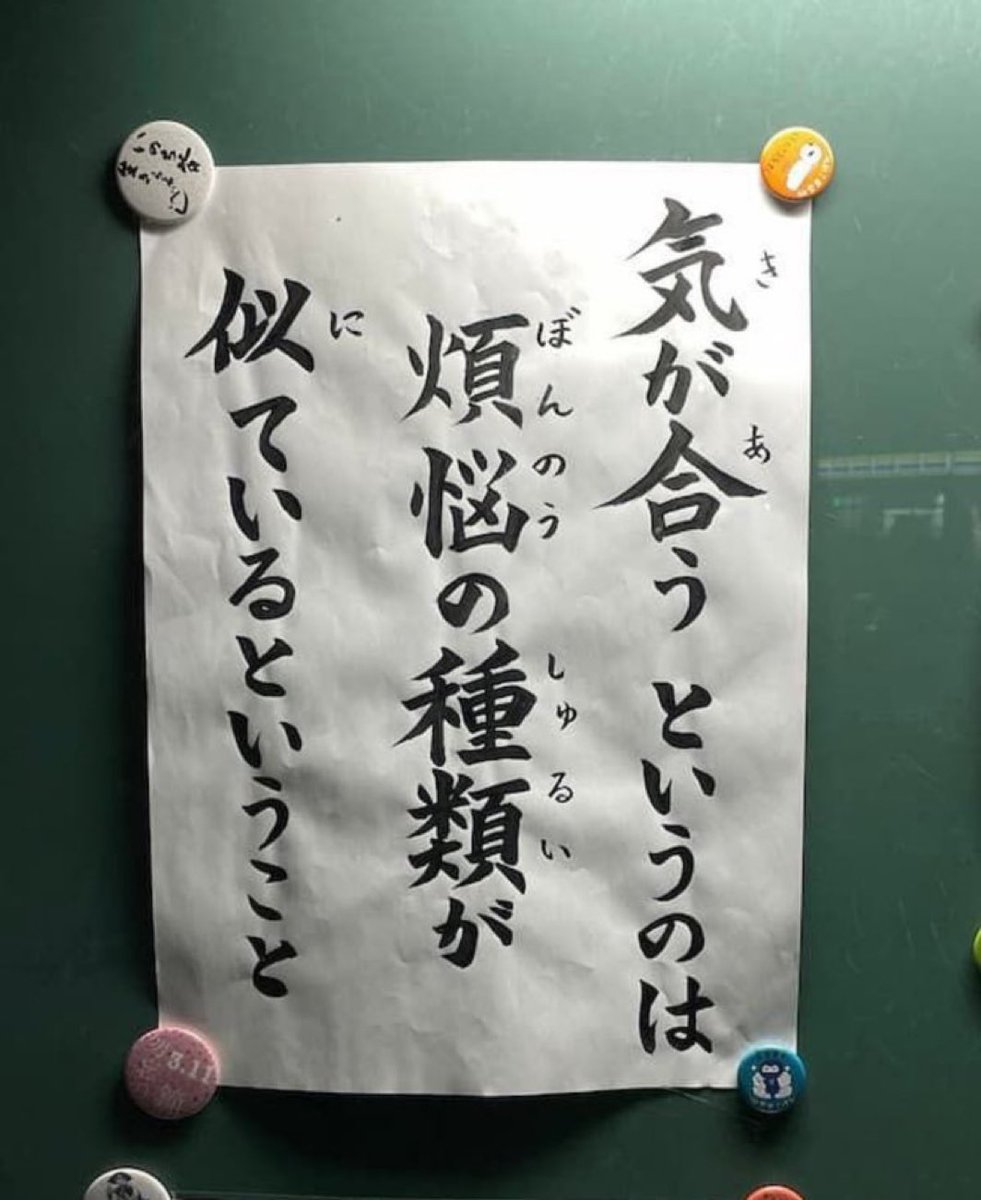 気が合うというのは
煩悩の種類が
似ているということ
き
あ
ぼんのう
しゅるい
に
3.11